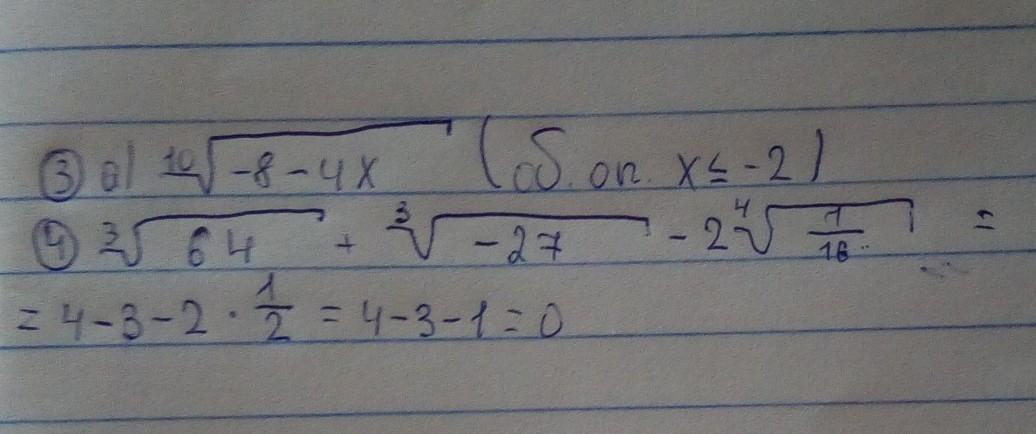 ③ а) ¹⁰√(-8-4x) (об. оп. x ≤ -2)
④ ³√64 + ³√-27 - 2 ⁴√(1/16) =
= 4-3-2 · 1/2 = 4-3-1 = 0